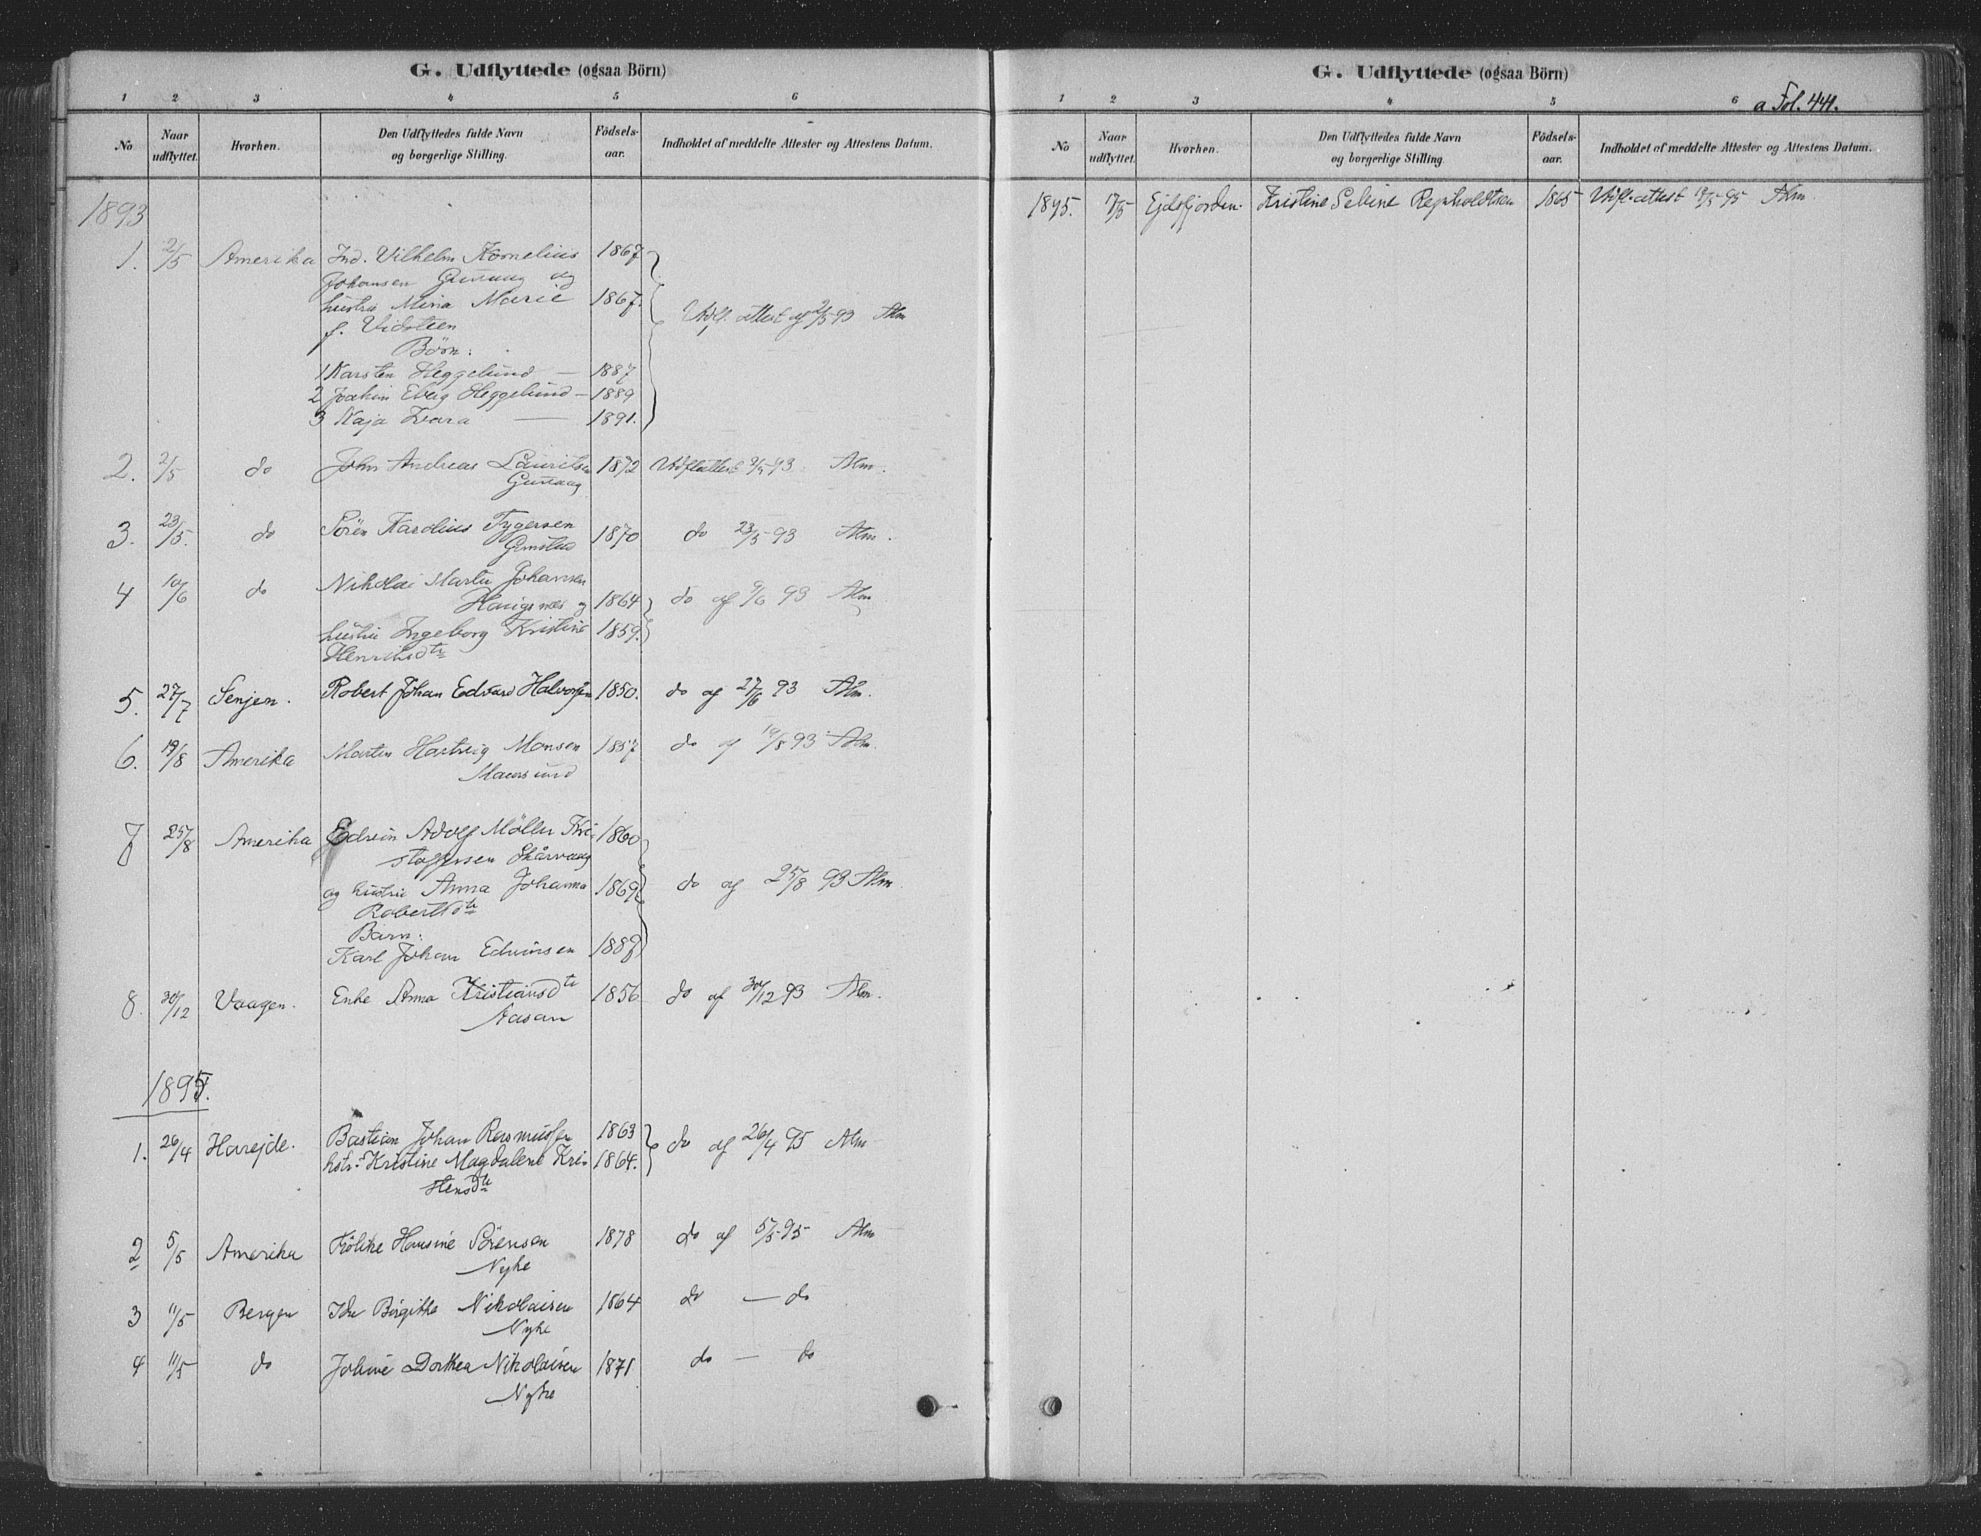 G. Udflyttede (ogsaa Börn)
1 2 3 4 5 6
No Naar udflyttet. Hvorhen. Den Udflyttedes fulde Navn og borgerlige Stilling. Födsels-aar. Indholdet af meddelte Attester og Attestens Datum.
1893
1. 2/5 Amerika Ind. Vilhelm Kornelius 1867
Johansen og
hustru Mina Marie 1867.
f. Vidsteen Udfl. attest af 2/5 93 Alm
Börn:
1 Karsten Heggelund — 1887
2 Joakim Ebeig Heggelund — 1889
3 Kaja — 1891.
2. 2/5 do John Andreas Lauritsen 1872 Udflattest 93 Alm.
3. 23/5. do Sören Karolius Tygersen 1870 do 23/5 93 Alm.
4 10/6 do Nikolai Martin Johansen
Haugsnes og 1864 do af 9/6 93 Alm
hustru Ingeborg Kristine 1859.
Henriksdtr
5. 27/7 Senjen. Robert Johan Edvard Halvorsen 1850. do af 27/6 93 Alm.
6. 19/8 Amerika Martin Hartvig Monsen 1857 do af 19/8 93 Alm.
Maursund
7 25/8 Amerika Edvin Adolf Möller Kri- 1860
stoffersen Skårvaag
og hustru Anna Johanna 1869 do af 25/8 93 Alm.
Robertsdtr
Barn:
Karl Johan Edvinsen 1889
8. 30/12 Vaagen. Enke Anna Kristiansdtr 1856 do af 30/12 93 Alm.
Aasan
1895.
1. 26/4 Havejde. Bastian Johan Rasmussen 1863 do af 26/4 95 Alm
hstr. Kristine Magdalene Kri- 1864.
stensdtr
2 5/5 Amerika Hansine Sörensen 1878 do af 5/5 95 Alm
Nyke
3 11/5 Bergen Ida Birgithe Nikolaisen 1864 do — do
Nyke
4 11/5 do Johine Dorthea Nikolaisen 1871 do — do
Nyke
G. Udflyttede (ogsaa Börn)
1 2 3 4 5 6 a Fol. 44.
No Naar udflyttet. Hvorhen. Den Udflyttedes fulde Navn og borgerlige Stilling. Födsels-aar. Indholdet af meddelte Attester og Attestens Datum.
1895. 17/5 Ejdsfjorden. Kristine Seline Regnholdtsen 1865 Udfl. attest 95 Alm.